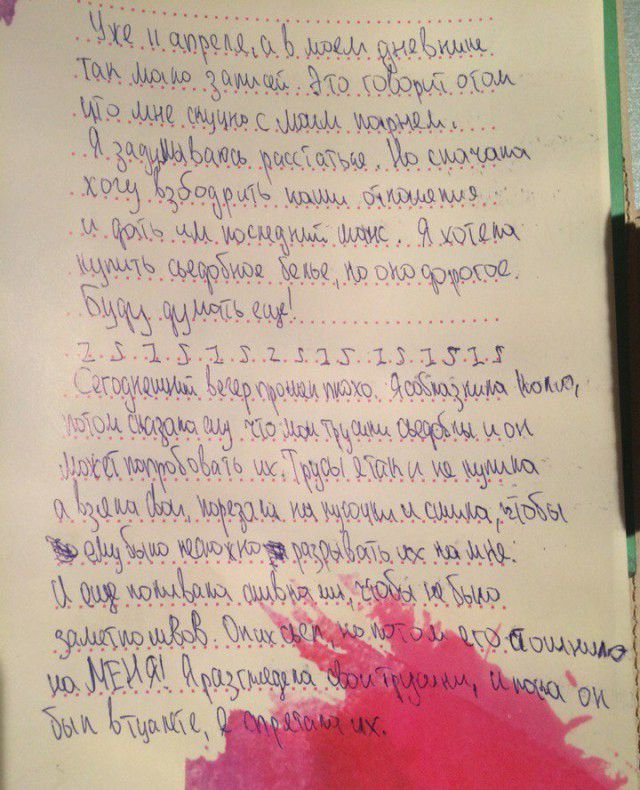 Уже 11 апреля, а в моем дневнике
так мало записей. Это говорит о том
что мне скучно с моим парнем.
Я задумываюсь расстаться. Но сначала
хочу взбодрить наши отношения
и дать им последний шанс. Я хотела
купить съедобное белье, но оно дорогое.
Буду думать еще!
Сегоднешний вечер прошел плохо. Я соблазнила Колю,
потом сказала ему что мои трусики съедобны и он
может попробовать их. Трусы я так и не купила
а взяла свои, порезала на кусочки и сшила, чтобы
ему было несложно разрывать их на мне.
И еще поливала сливками, чтобы не было
заметно швов. Он их съел, но потом его стошнило
на МЕНЯ! Я разглядела свои трусики, и пока он
был в туалете, я спрятала их.